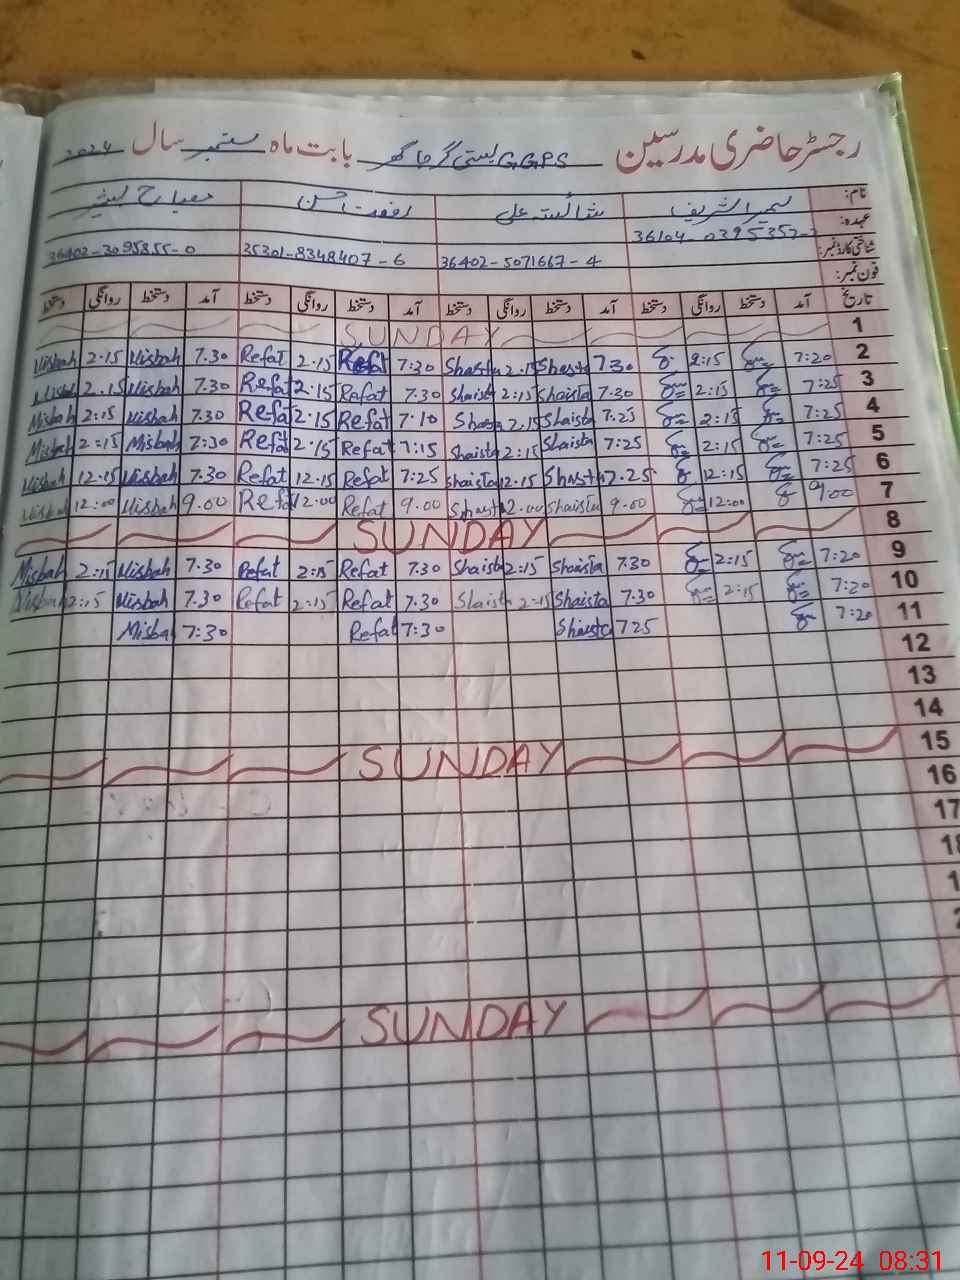 رجسٹر حاضری مدرسین GGPS بستی گرجا گھر بابت ماہ ستمبر سال 2024
نام: سمیرا شریف شائستہ علی رفعت احسن مصباح بشیر
عہدہ:
شناختی کارڈ نمبر: 36402-5071667-4 35301-8348407-6 36402-3095855-0
فون نمبر:
تاریخ آمد دستخط روانگی دستخط آمد دستخط روانگی دستخط آمد دستخط روانگی دستخط آمد دستخط روانگی دستخط
SUNDAY 1
Misbah 2.15 Misbah 7.30 Refat 2.15 Refat 7:30 Shaista 2.15 Shaista 7.30 2:15 7:20 2
Misbah 2.15 Misbah 7.30 Refat 2.15 Refat 7.30 Shaista 2:15 Shaista 7.30 2:15 7:25 3
Misbah 2:15 Misbah 7.30 Refat 2.15 Refat 7.10 Shaista 2.15 Shaista 7.25 2:15 7:25 4
Misbah 2:15 Misbah 7:30 Refat 2.15 Refat 7:15 Shaista 2:15 Shaista 7.25 2:15 7:25 5
Misbah 12.15 Misbah 7.30 Refat 12.15 Refat 7:25 Shaista 12.15 Shaista 7.25 12:15 7:25 6
Misbah 12:00 Misbah 9.00 Refat 12:00 Refat 9.00 Shaista 12.00 Shaista 9.00 12:00 9:00 7
SUNDAY 8
Misbah 2:15 Misbah 7.30 Refat 2:15 Refat 7.30 Shaista 2:15 Shaista 7.30 2:15 7:20 9
Misbah 2:15 Misbah 7.30 Refat 2:15 Refat 7.30 Shaista 2:15 Shaista 7.30 2:15 7:20 10
Misbah 7:30 Refat 7:30 Shaista 725 7:20 11
12
13
14
SUNDAY 15
16
17
SUNDAY
11-09-24 08:31